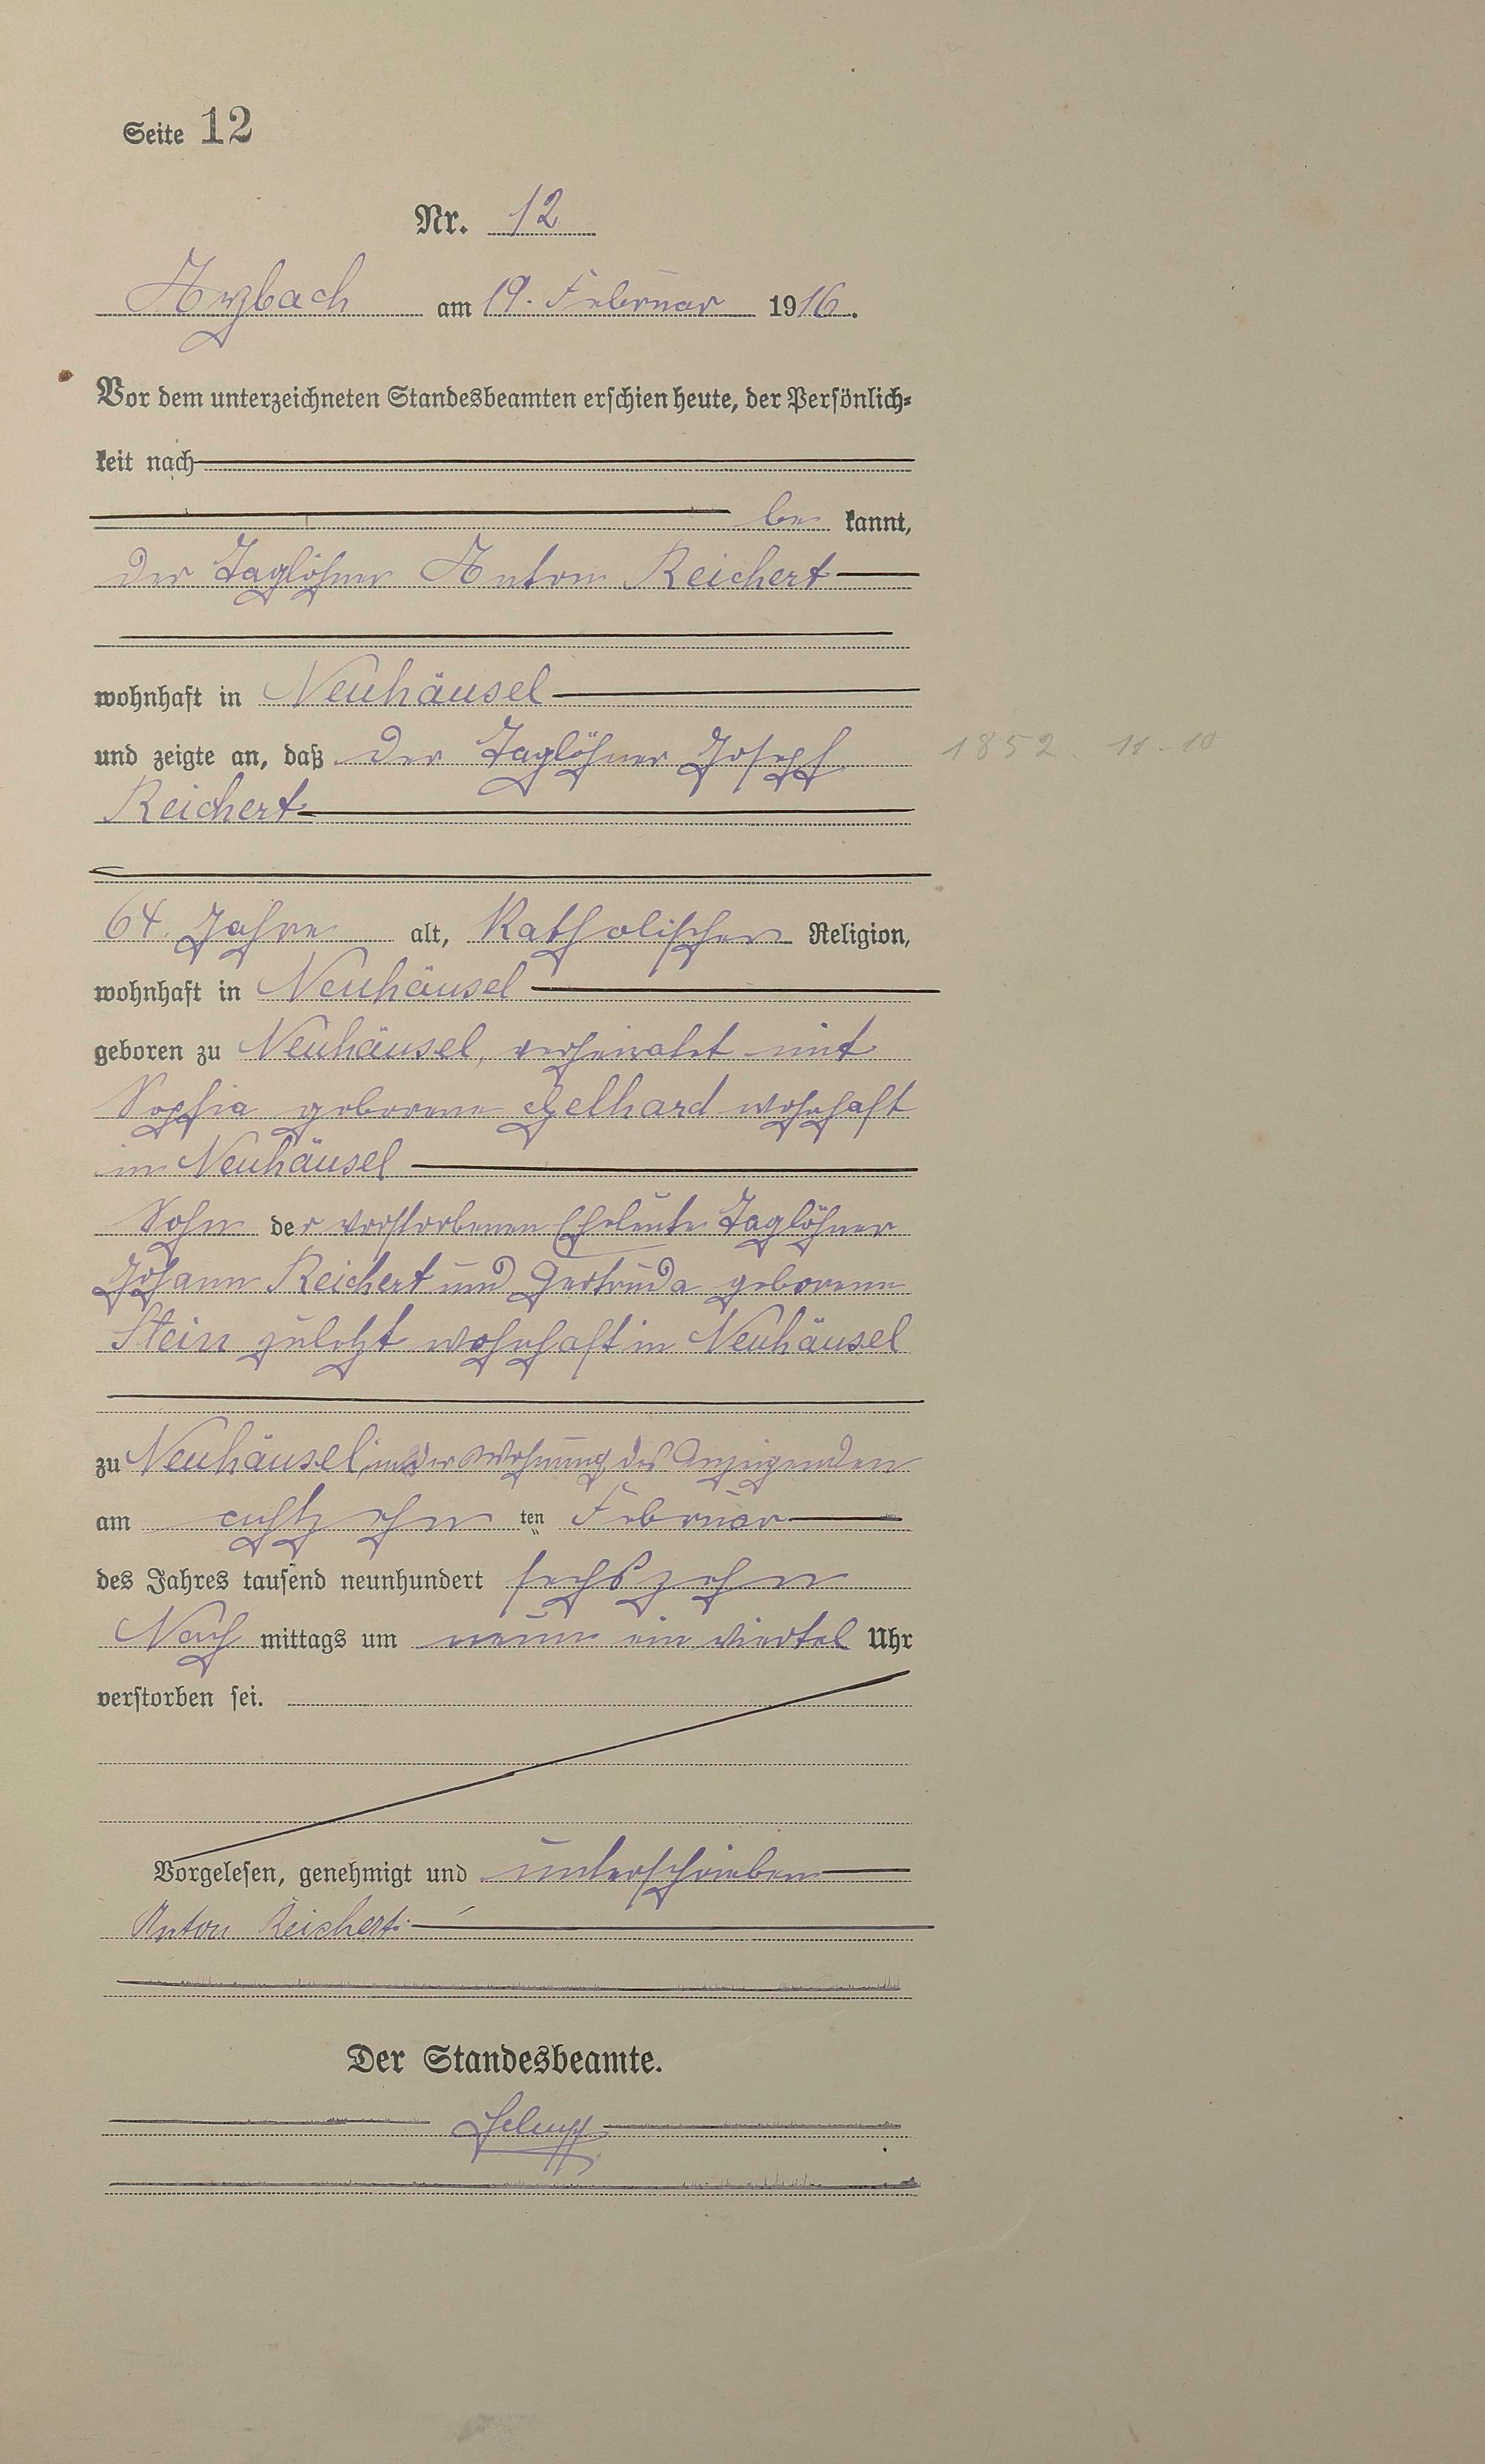 Seite 12
Nr. 12
Arzbach am 19. Februar 1916.
Vor dem unterzeichneten Standesbeamten erschien heute, der Persönlich-
keit nach
be kannt,
der Taglöhner Anton Reichert
wohnhaft in Neuhäusel
und zeigte an, daß der Taglöhner Joseph 1852. 11-10
Reichert
64 Jahre alt, Katholischer Religion,
wohnhaft in Neuhäusel
geboren zu Neuhäusel, verheiratet mit
Sophia geborene Gelhard wohnhaft
in Neuhäusel
Sohn der verstorbenen Eheleute Taglöhner
Johann Reichert und Gertruda geborene
Stein zuletzt wohnhaft in Neuhäusel
zu Neuhäusel, in der Wohnung des Anzeigenden
am achtzehn ten Februar
des Jahres tausend neunhundert sechszehn
Nach mittags um neun ein viertel Uhr
verstorben sei.
Vorgelesen, genehmigt und unterschrieben
Anton Reichert.
Der Standesbeamte.